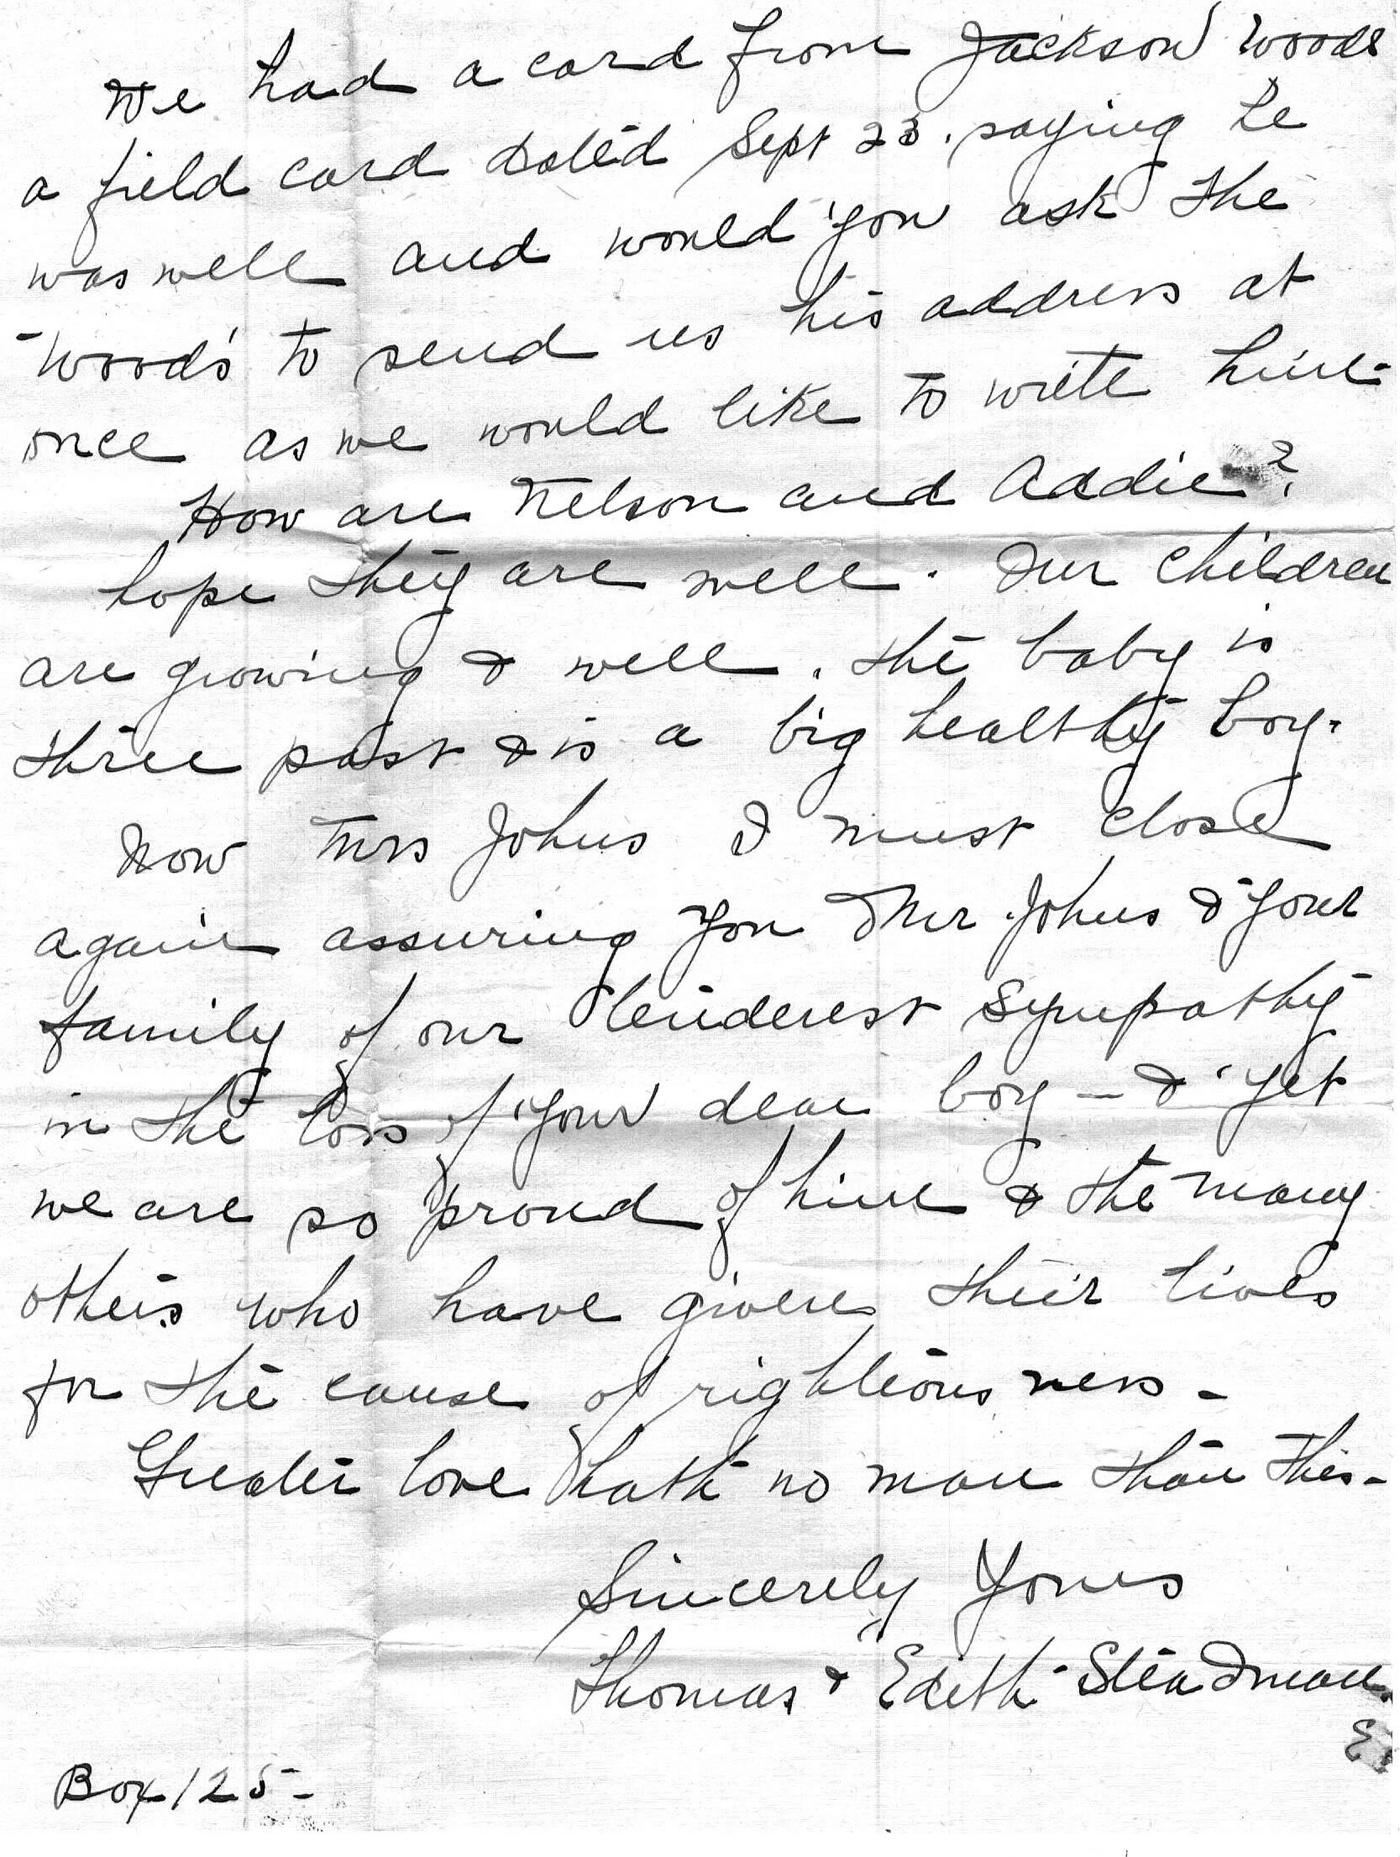 We had a card from Jackson Woods
a field card dated Sept 23. saying he
was well and would you ask the
Woods to send us his address at
once as we would like to write him -
How are Nelson and Addie?
hope they are well. Our children
are growing & well. the baby is
three past & is a big healthy boy.
Now Mrs Johns I must close
again assuring you Mr Johns & your
family of our tenderest sympathy
in the loss of your dear boy - & yet
we are so proud of him & the many
others who have given their lives
for the cause of righteousness -
Greater love hath no man than this -
Sincerely Yours
Thomas & Edith Steadman.
Box 125 -